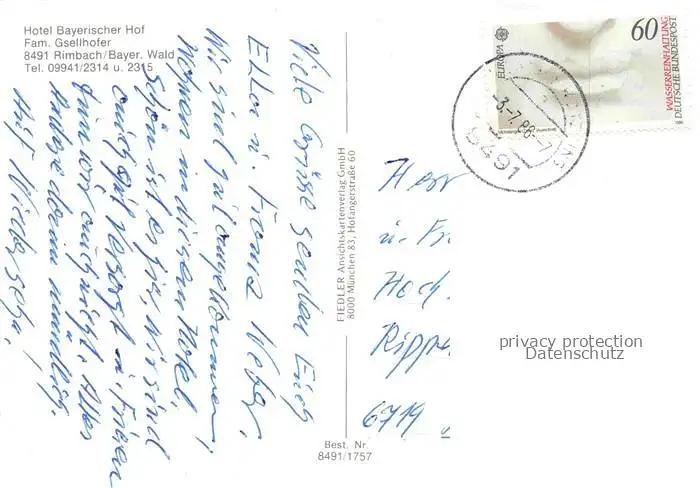 Hotel Bayerischer Hof
Fam. Gsellhofer
8491 Rimbach/Bayer. Wald
Tel. 09941/2314 u. 2315
Viele Grüße senden Euch
Ella u. Franz Weber.
Wir sind gut angekommen,
Wohnen in diesem Hotel,
Schön ist es hier, wir sind
auch gut versorgt u. Frieren
tun wir auch nicht. Alles
andere dann mündlich.
Auf Wiedersehn.
FIEDLER Ansichtskartenverlag GmbH
8000 München 83, Hofangerstraße 60
Best. Nr.
8491/1757
EUROPA
60
WASSERREINHALTUNG
DEUTSCHE BUNDESPOST
3.-7.88-7
8491
u. Fr
Hoch
Rippe
6719
privacy protection
Datenschutz